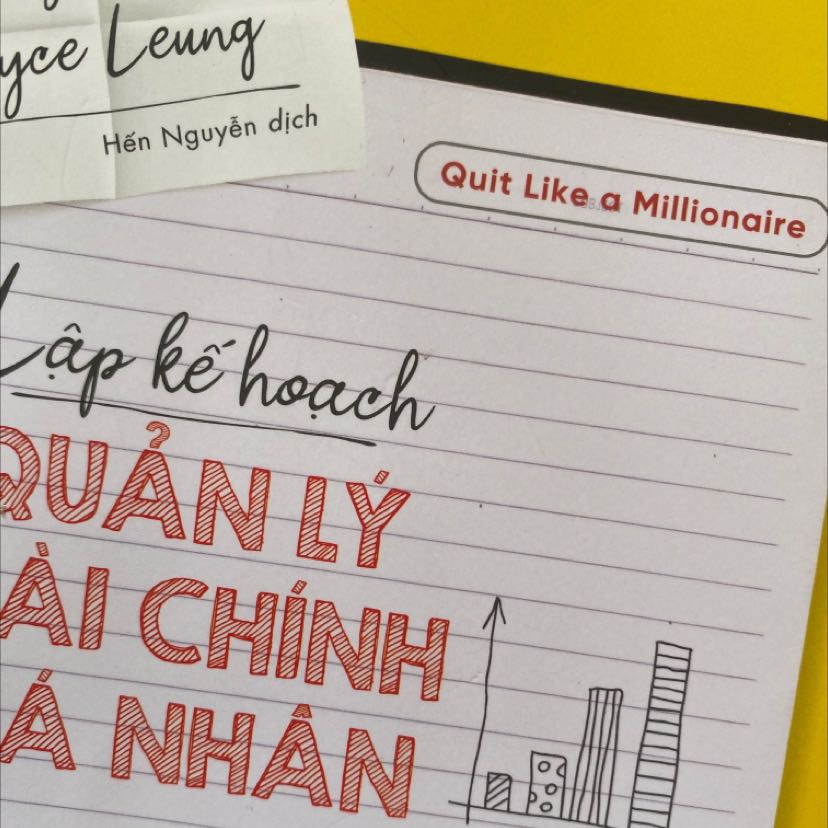 yce Leung
Hến Nguyễn dịch
Quit Like a Millionaire
Lập kế hoạch
QUẢN LÝ
ÀI CHÍNH
Á NHÂN